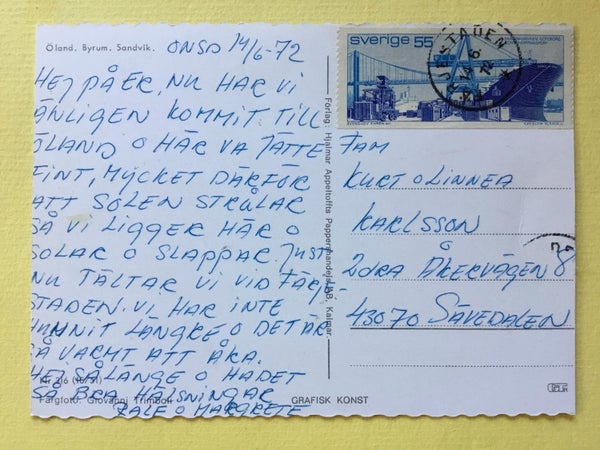 Öland. Byrum. Sandvik.
ONSD 14/6-72
HEJ PÅ ER, NU HAR VI
ÄNLIGEN KOMMIT TILL
ÖLAND O HÄR VA JÄTTE
FINT, MYCKET DÄRFÖR
ATT SOLEN STRÅLAR
SÅ VI LIGGER HÄR O
SOLAR O SLAPPAR. JUST
NU TÄLTAR VI VID FÄRJE-
STADEN. VI HAR INTE
HUNNIT LÄNGRE O DET ÄR
SÅ VARMT ATT ÅKA.
HEJ SÅ LÄNGE O HA DET
SÅ BRA. HÄLSNINGAR
RALF O MARGRETE
Nr 216
Färgfoto: Giovanni Trimboli
Förlag: Hjalmar Appeltoffts Pappershandel AB, Kalmar.
GRAFISK KONST
sverige 55
FÄRJESTADEN
14 6 72
FAM
KURT O LINNEA
KARLSSON
2:DRA ÅKERVÄGEN 8
43070 SÄVEDALEN